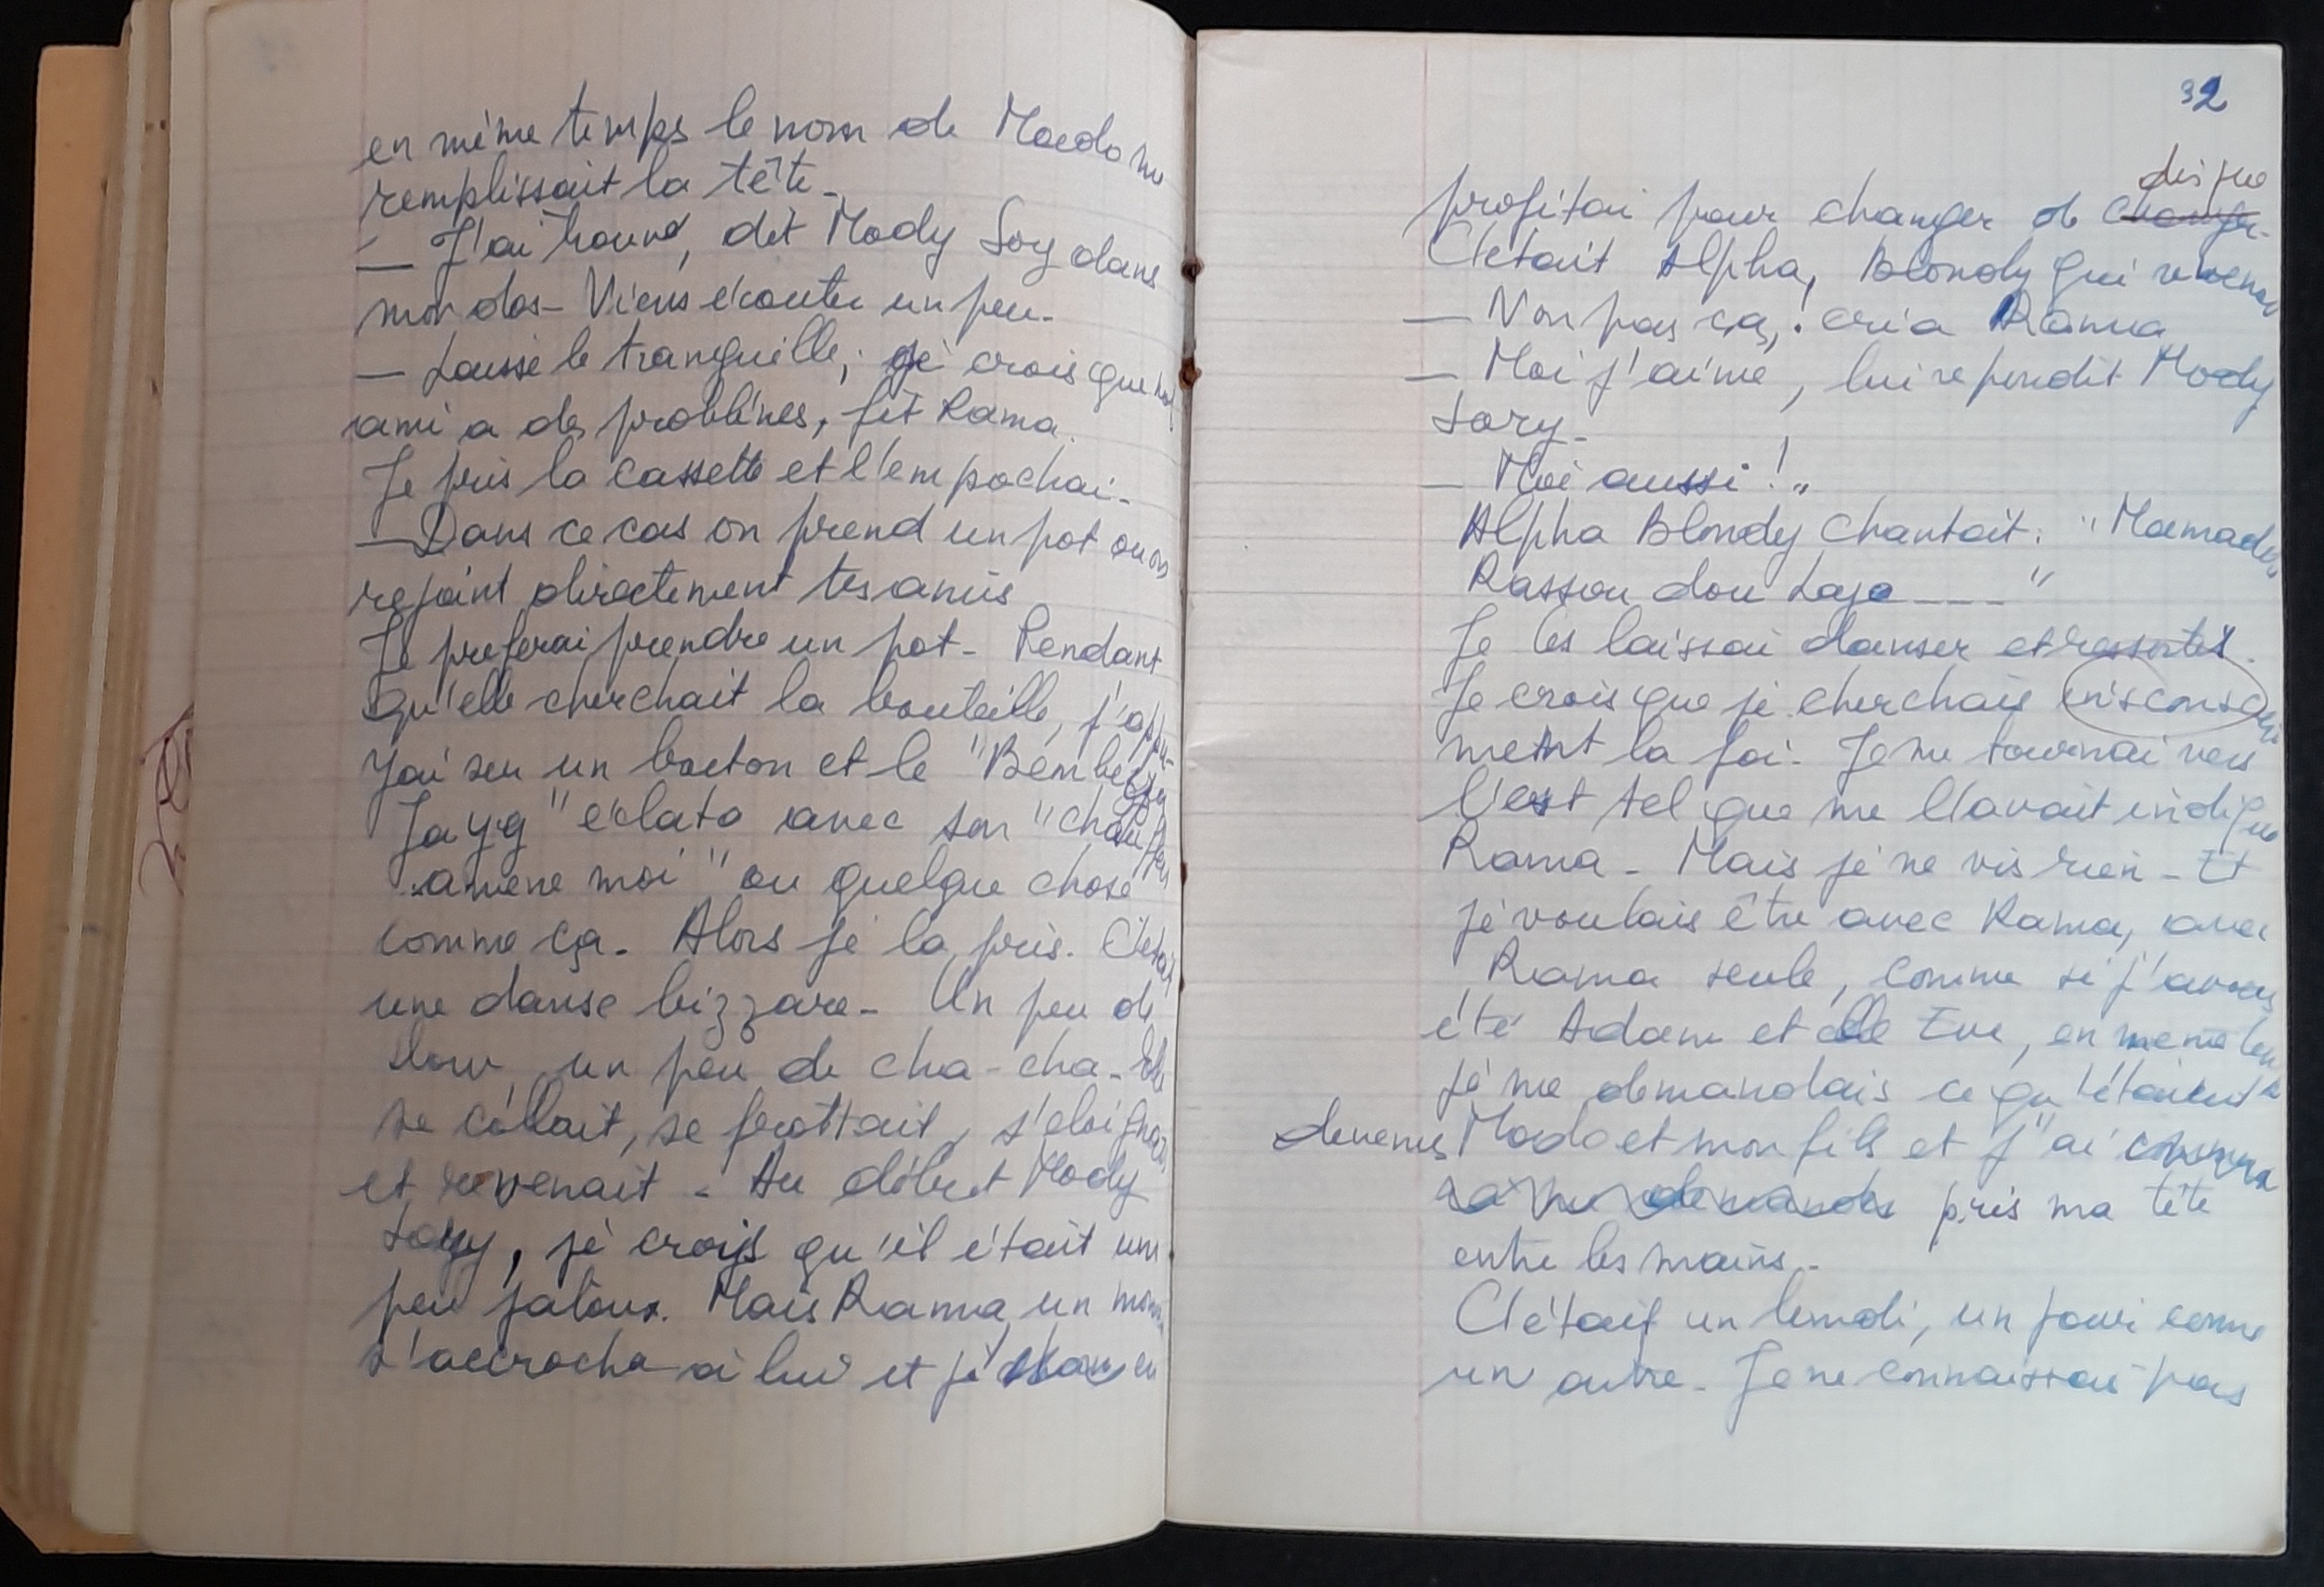 en même temps le nom de Mado me
remplissait la tête.
— J'ai trouvé, dit Mody Sory dans
mon dos - Viens écouter un peu.
— Laisse le tranquille, je crois que
ami a des problèmes, fit Rama.
Je pris la cassette et l'empochai.
— Dans ce cas on prend un pot ou on
rejoint directement tes amis
Je preferai prendre un pot - Pendant
qu'elle cherchait la bouteille, j'appu-
yai su un bouton et le "Bembeya
Jazz" éclata avec son "chauffeur
amene moi" ou quelque chose
comme ça. Alors je la pris. C'était
une danse bizzare - Un peu de
slow, un peu de cha-cha - Elle
se collait, se frottait, s'eloignait
et revenait - Au début Mody
Sory, je crois qu'il était un
peu jaloux. Mais Rama un moment
s'accrocha à lui et j'en
32
disque
profitai pour changer de change.
C'était Alpha, Blondy qui revenait
— Non pas ça, ! cria Rama
— Moi j'aime, lui repondit Mody
Sory -
— Moi aussi !"
Alpha Blondy chantait : "Mamadou
Rassou dou Laye ---"
Je les laissai danser et ressortis.
Je crois que je cherchais insconsciem
ment la foi. Je me tournai vers
l'est tel que me l'avait indiqué
Rama - Mais je ne vis rien - Et
je voulais être avec Rama, avec
Rama seule, comme si j'avais
été Adam et elle Eve, en meme temps
je me demandais ce qu'étaient
devenus Mado et mon fils et j'ai commencé
à me demander pris ma tête
entre les mains -
C'était un lundi, un jour comme
un autre - Je ne connaissais pas